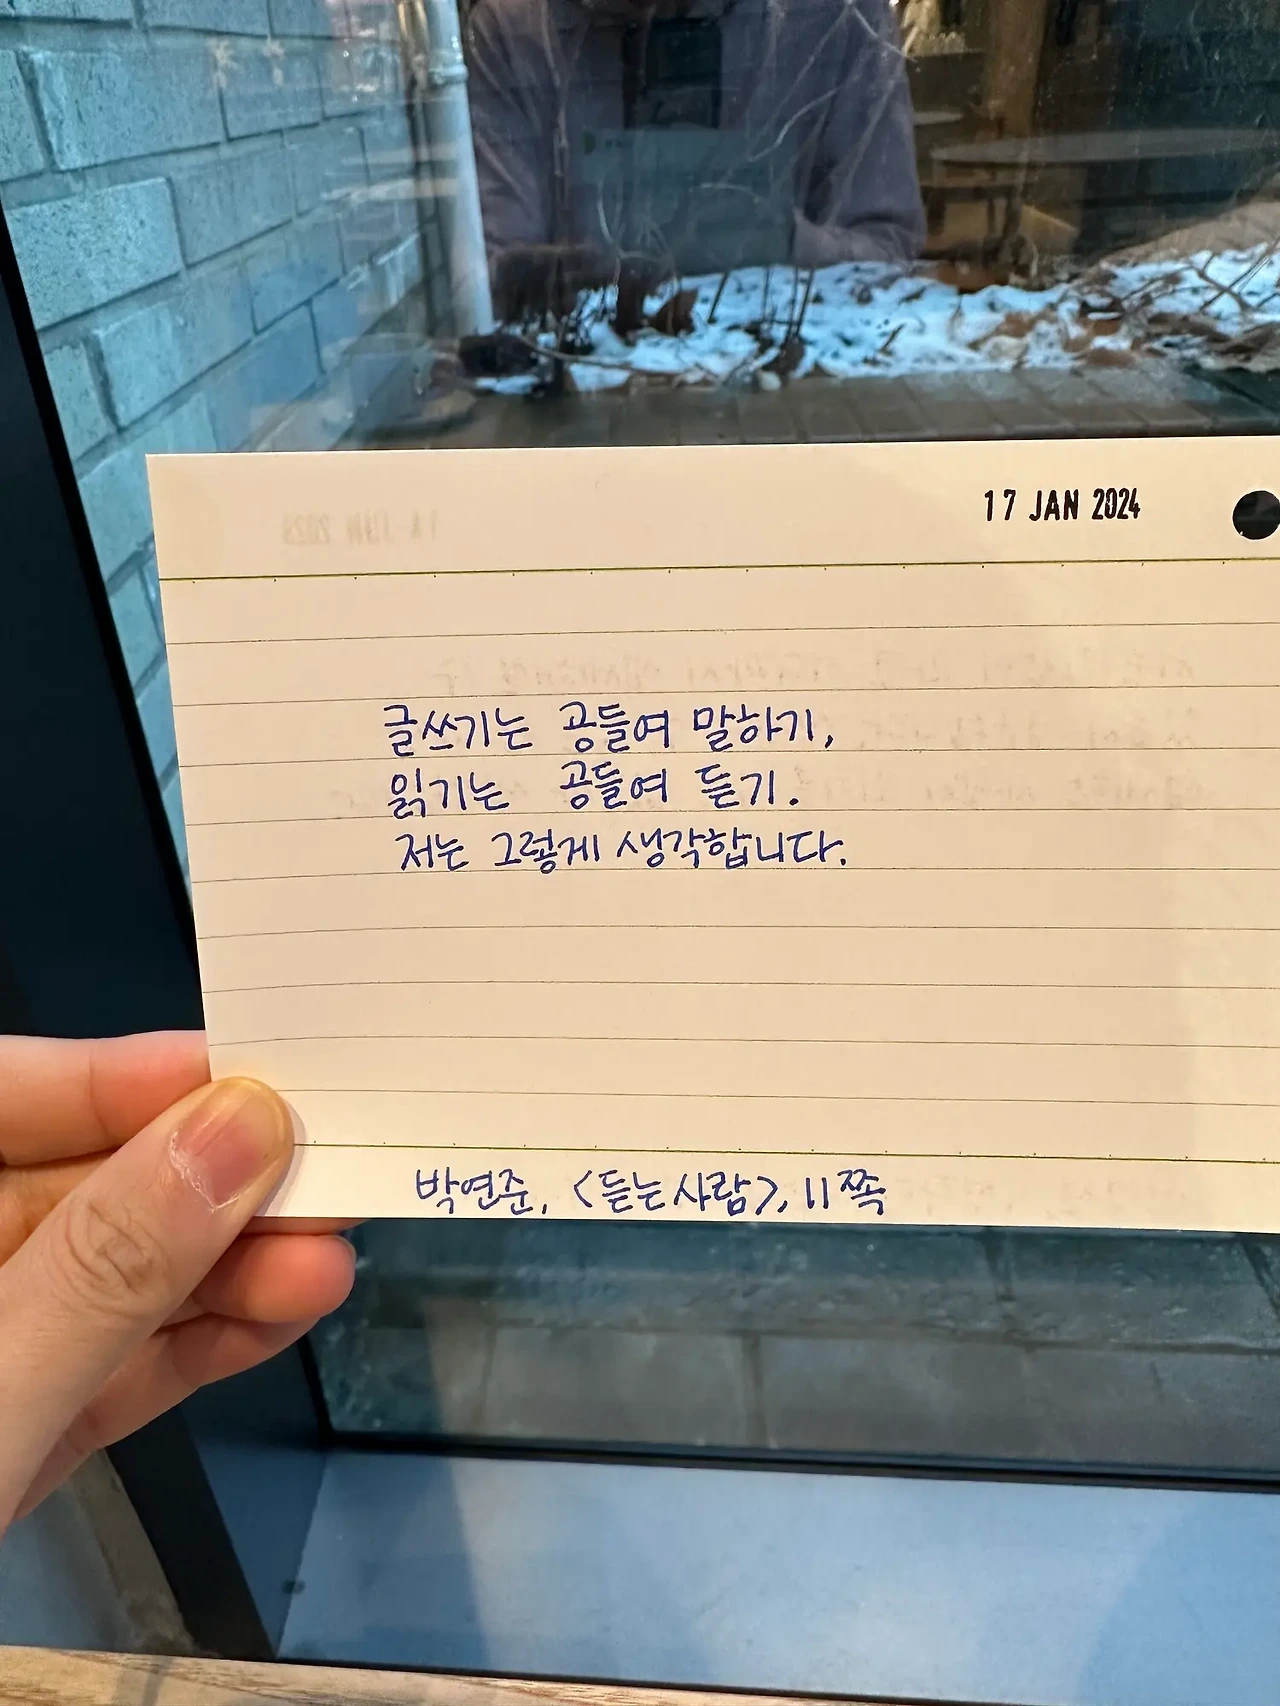 17 JAN 2024
글쓰기는 공들여 말하기,
읽기는 공들여 듣기.
저는 그렇게 생각합니다.
박연준, <듣는 사람>, 11쪽